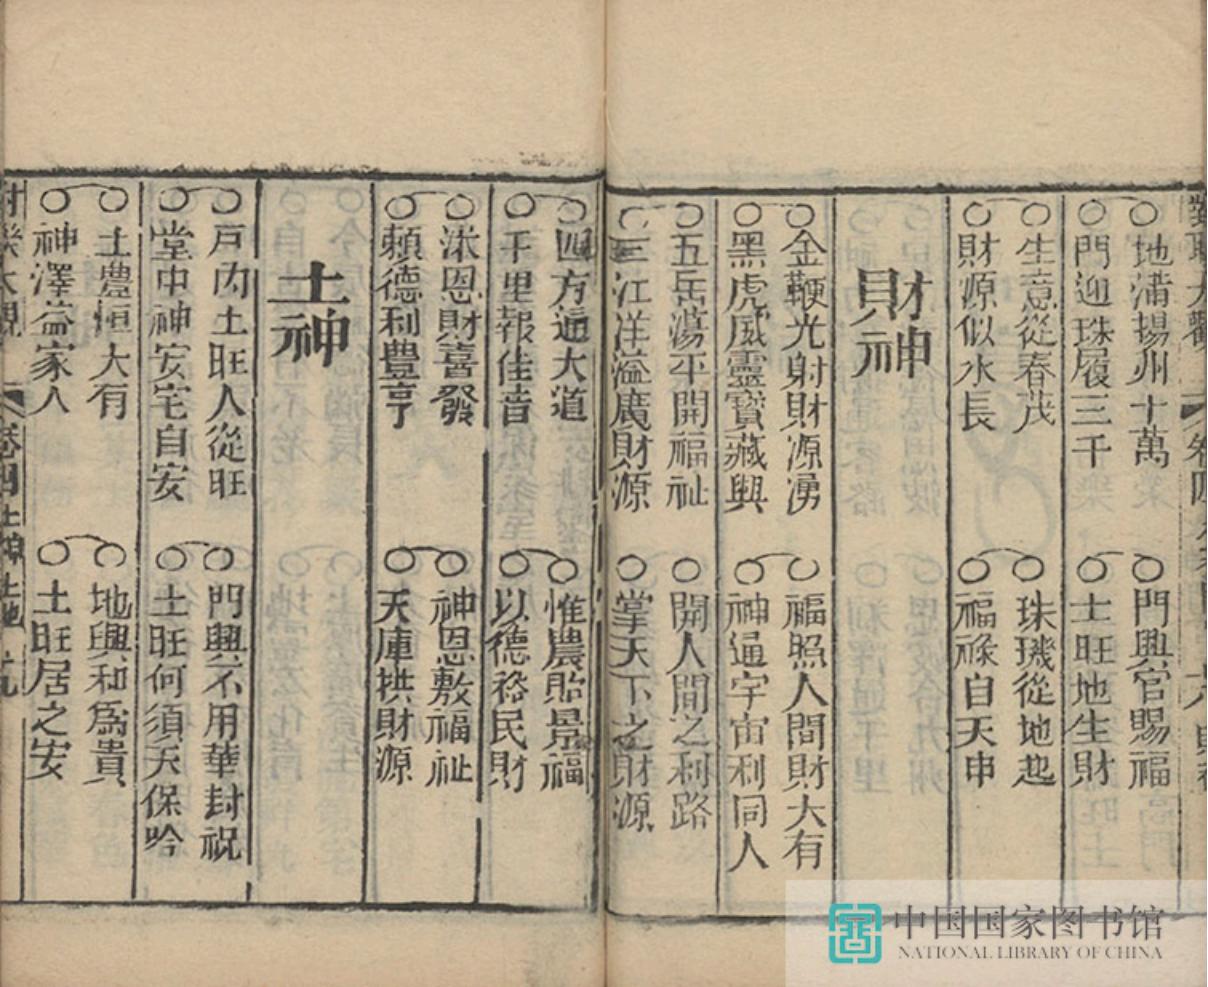 地滿揚州十萬
門迎珠履三千
門興官賜福
土旺地生財
生意從春茂
財源似水長
珠璣從地起
福祿自天申
財神
金鞭光射財源湧
黑虎威靈寶藏興
福照人間財大有
神通宇宙利同人
五岳蕩平開福祉
三江洋溢廣財源
開人間之利路
掌天下之財源
四方通大道
千里報佳音
惟農貽景福
以德裕民財
沐恩財喜發
賴德利豊亨
神恩敷福祉
天庫拱財源
土神
戸內土旺人從旺
堂中神安宅自安
門興不用華封祝
土旺何須天保吟
土豊恒大有
神澤益家人
地興和為貴
土旺居之安
卷四土神土地
十九
中国国家图书馆
NATIONAL LIBRARY OF CHINA